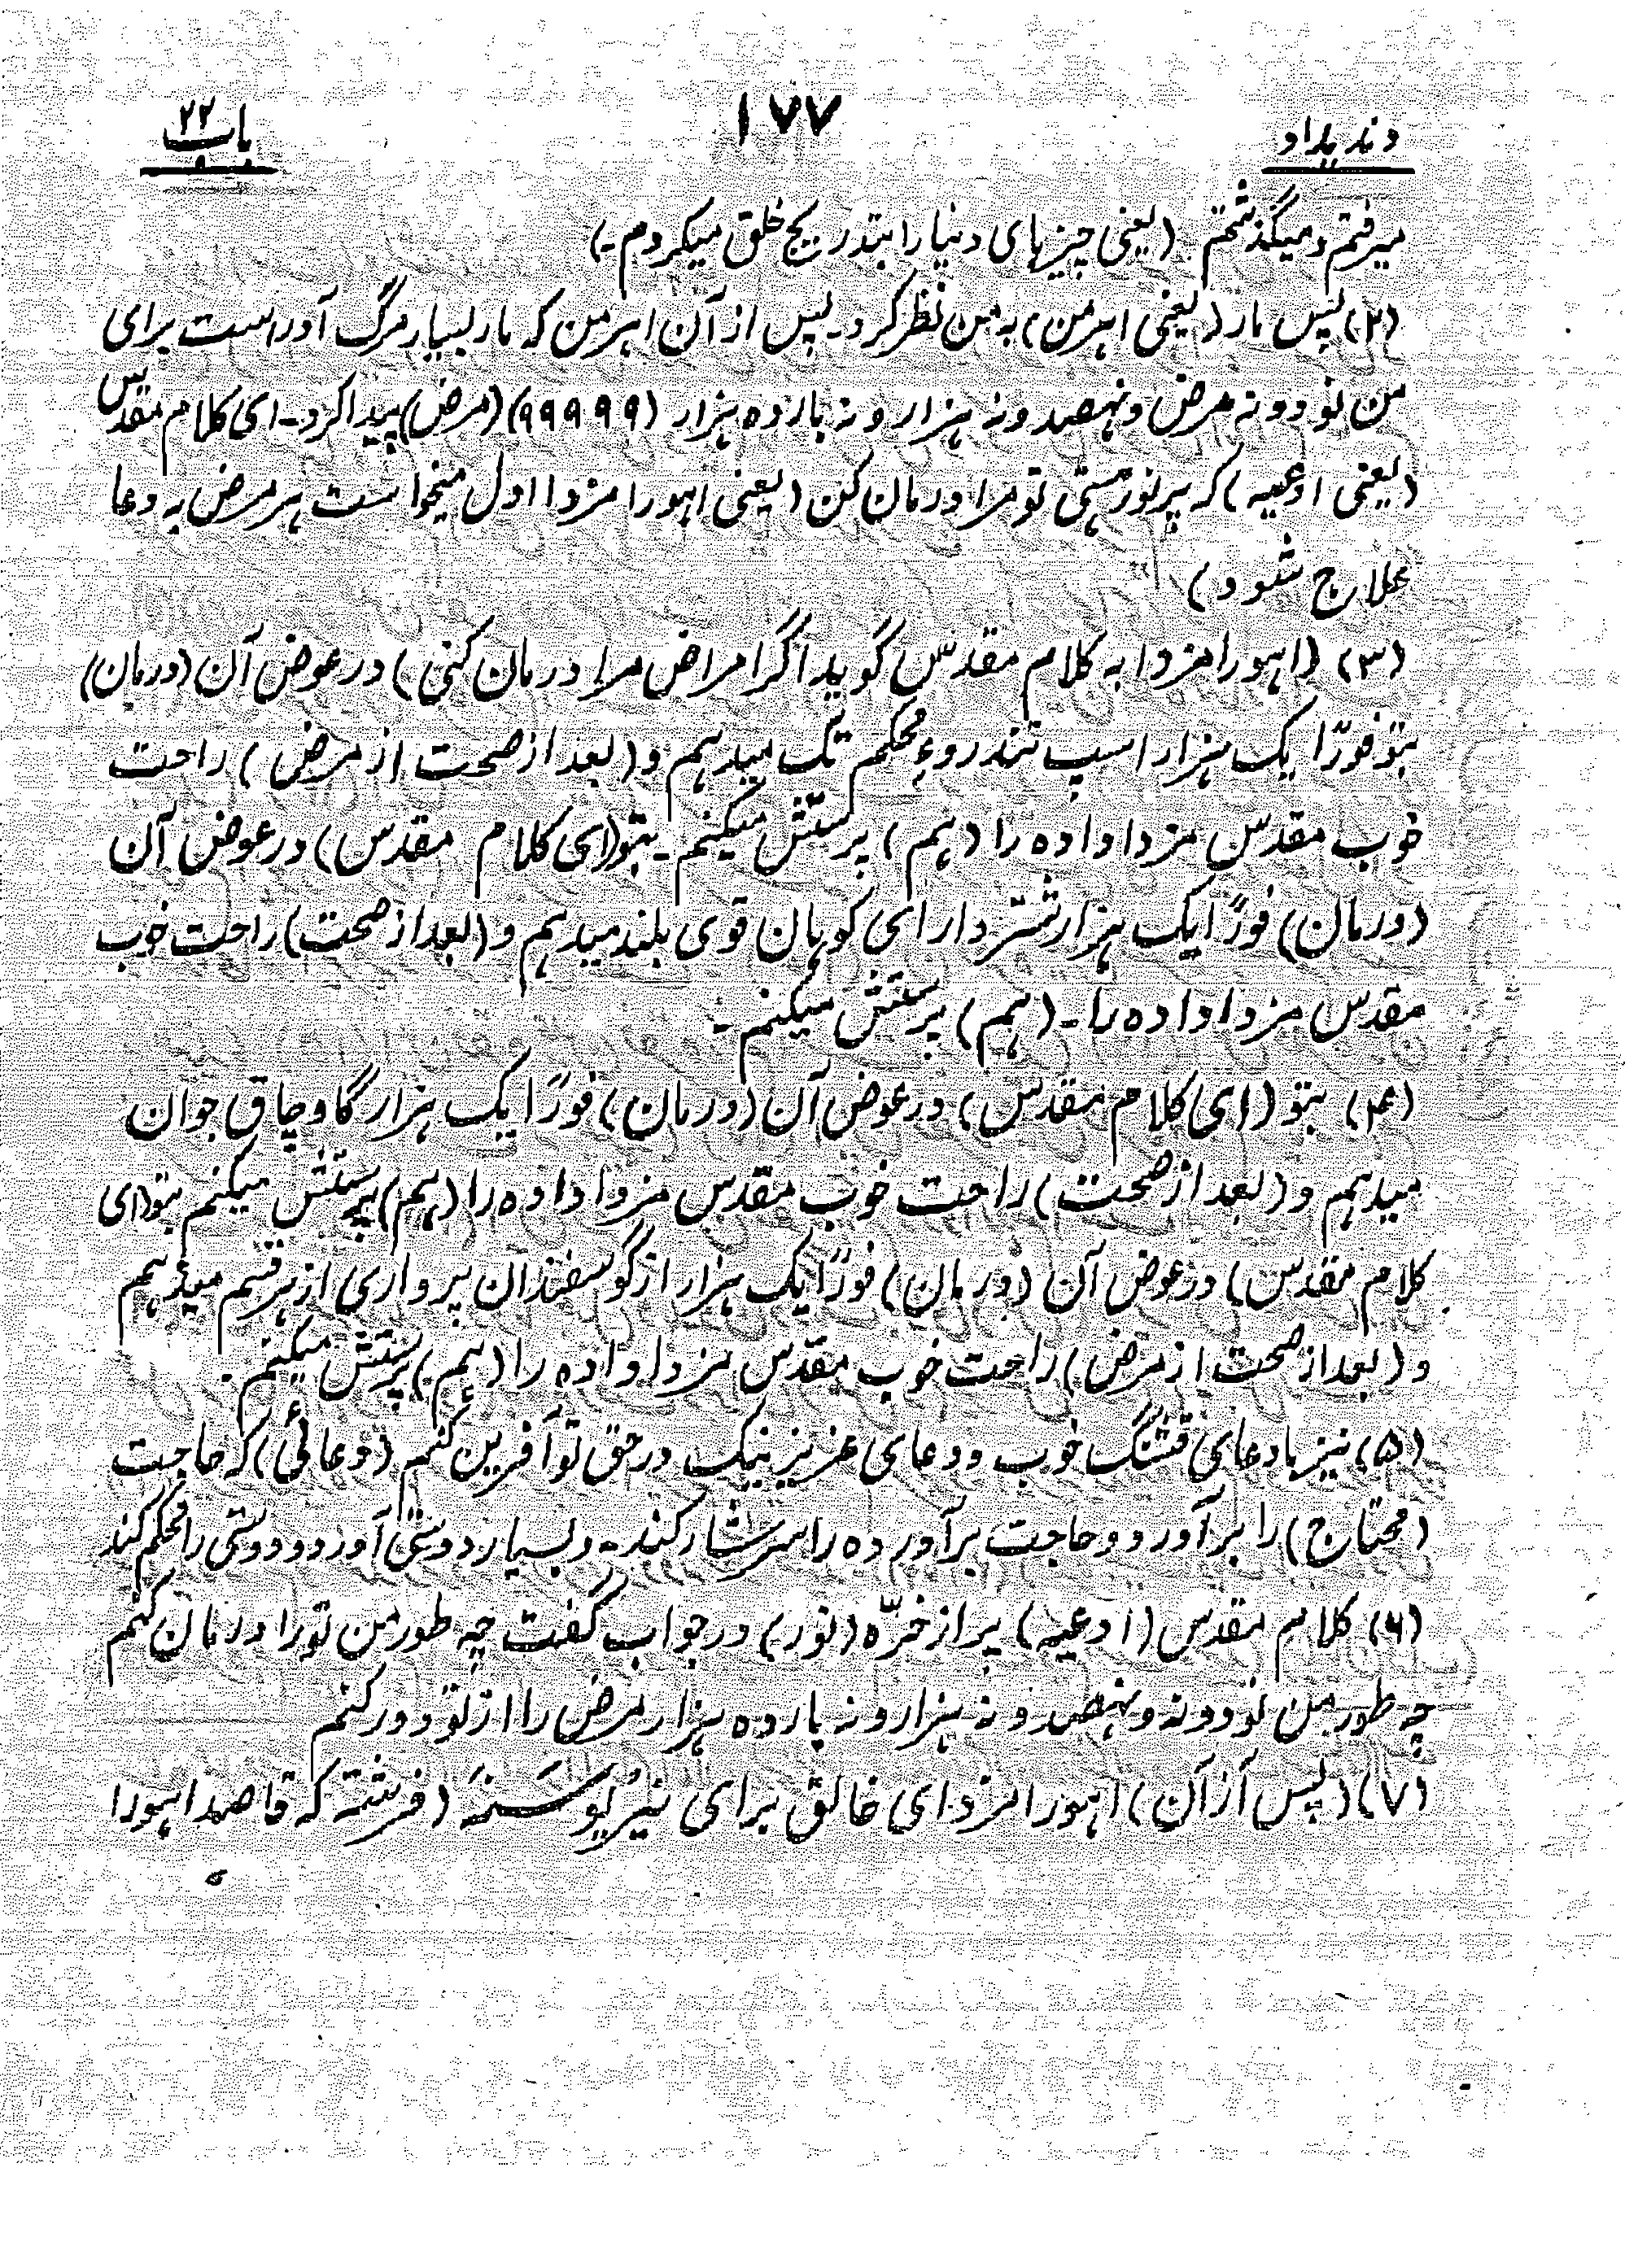 وندیداد ۱۷۷ باب ۲۲
میرفتم و میگذشتم (یعنی چیزهای دنیا را بتدریج خلق میکردم-)
(۲) پس مار (یعنی اهرمن) به من نظر کرد- پس از آن اهرمن که مار بسیار مرگ آور است برای
من نود و نه مرض و نهصد و نه هزار و نه بار ده هزار (۹۹۹۹۹) (مرض) پیدا کرد- ای کلام مقدس
(یعنی ادعیه) که پر نور هستی تو مرا درمان کن (یعنی اهورا مزدا اول میخواست هر مرض به دعا
علاج شود)
(۳) (اهورا مزدا به کلام مقدس گوید اگر امراض مرا درمان کنی) در عوض آن (درمان)
بتو فوراً یک هزار اسپ تندرو محکم تگ میدهم و (بعد از صحت از مرض) راحت
خوب مقدس مزدا داده را (هم) پرستش میکنم- بتو (ای کلام مقدس) در عوض آن
(درمان) فوراً یک هزار شتر دارای کوهان قوی بلند میدهم و (بعد از صحت) راحت خوب
مقدس مزدا داده را- (هم) پرستش میکنم-
(۴) بتو (ای کلام مقدس) در عوض آن (درمان) فوراً یک هزار گاو چاق جوان
میدهم و (بعد از صحت) راحت خوب مقدس مزدا داده را (هم) پرستش میکنم بتو (ای
کلام مقدس) در عوض آن (درمان) فوراً یک هزار از گوسفندان پرواری از هر قسم میدهم
و (بعد از صحت از مرض) راحت خوب مقدس مزدا داده را (هم) پرستش میکنم-
(۵) نیز با دعای قشنگ خوب و دعای عزیز نیک در حق تو آفرین کنم (دعائی) که حاجت
(محتاج) را برآورد و حاجت برآورده را سرشار کند- و بسیار دوستی آورد و دوستی را محکم کند
(۶) کلام مقدس (ادعیه) پر از خرّه (نور) در جواب گفت چه طور من تو را درمان کنم
چه طور من نود و نه و نهصد و نه هزار و نه بار ده هزار مرض را از تو دور کنم
(۷) (پس از آن) اهورا مزدای خالق برای (فرشته که قاصد اهورا